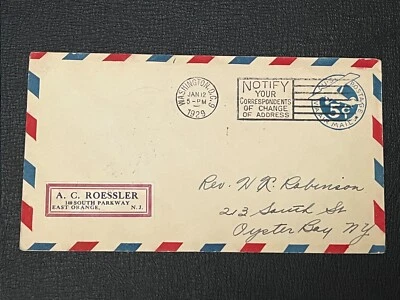 WASHINGTON, D.C. 9
JAN 12
5-PM
1929
NOTIFY
YOUR
CORRESPONDENTS
OF CHANGE
OF ADDRESS
U.S. POSTAGE
5¢
VIA AIR MAIL
A. C. ROESSLER
140 SOUTH PARKWAY
EAST ORANGE, N. J.
Rev. W. R. Robinson
213 South St
Oyster Bay NY